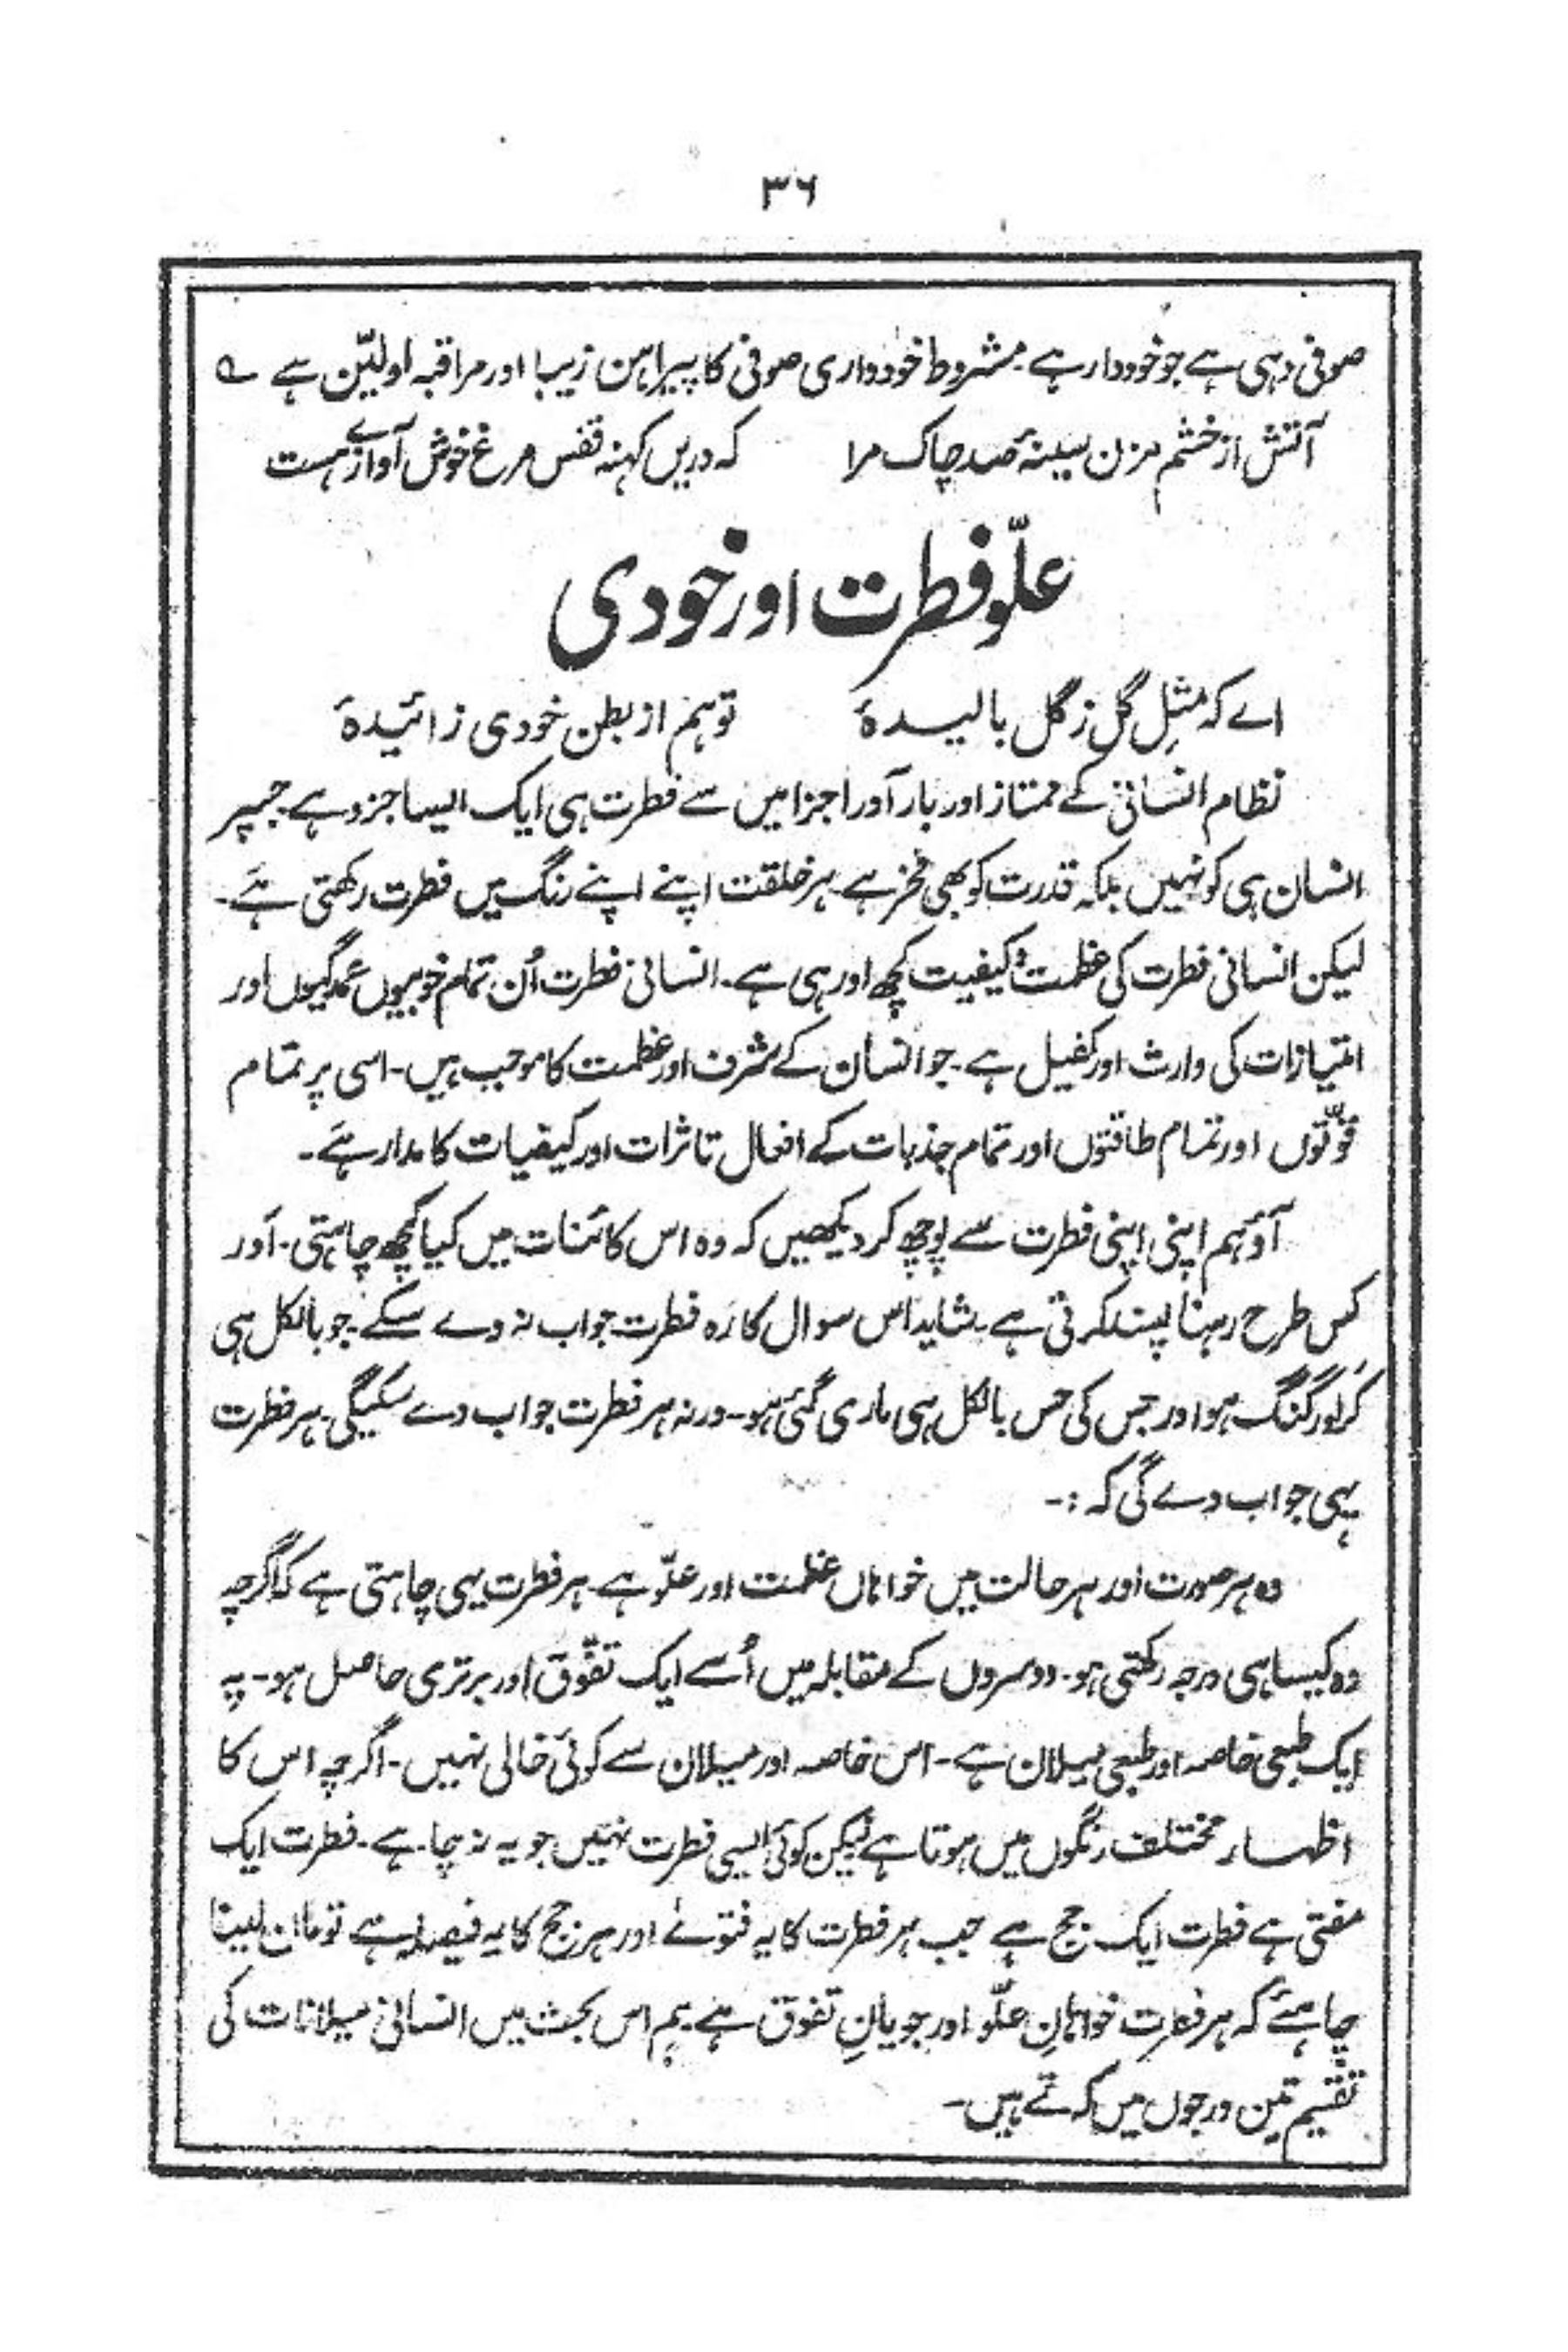 ۳۶
صوفی وہی ہے جو خوددار ہے۔ مشروط خودداری صوفی کا پیراہن زیبا اور مراقبہ اولیّن ہے ؎
آتش از خشم مزن سینۂ صد چاک مرا کہ دریں کہنہ قفس مرغ خوش آوازے ہست
علّو فطرت اور خودی
اے کہ مثلِ گل زگل بالیدۂ تو ہم از بطن خودی زائیدۂ
نظام انسانی کے ممتاز اور بارآور اجزا میں سے فطرت ہی ایک ایسا جزو ہے۔ جسپر
انسان ہی کو نہیں بلکہ قدرت کو بھی فخر ہے۔ ہر خلقت اپنے اپنے رنگ میں فطرت رکھتی ہے۔
لیکن انسانی فطرت کی عظمت و کیفیت کچھ اور ہی ہے۔ انسانی فطرت اُن تمام خوبیوں عمدگیوں اور
امتیازات کی وارث اور کفیل ہے۔ جو انسان کے شرف اور عظمت کا موجب ہیں۔ اسی پر تمام
قوّتوں اور تمام طاقتوں اور تمام جذبات کے افعال تاثرات اور کیفیات کا مدار ہے۔
آؤ ہم اپنی اپنی فطرت سے پوچھ کر دیکھیں کہ وہ اس کائنات میں کیا کچھ چاہتی۔ اور
کس طرح رہنا پسند کرتی ہے۔ شاید اس سوال کا وہ فطرت جواب نہ دے سکے۔ جو بالکل ہی
کر اور گنگ ہو اور جس کی حس بالکل ہی ماری گئی ہو۔ ورنہ ہر فطرت جواب دے سکیگی۔ ہر فطرت
یہی جواب دے گی کہ :۔
وہ ہر صورت اور ہر حالت میں خواہاں عظمت اور علّو ہے۔ ہر فطرت یہی چاہتی ہے کہ اگرچہ
وہ کیسا ہی درجہ رکھتی ہو۔ دوسروں کے مقابلہ میں اُسے ایک تفوّق اور برتری حاصل ہو۔ یہ
ایک طبعی خاصہ اور طبعی میلان ہے۔ اس خاصہ اور میلان سے کوئی خالی نہیں۔ اگرچہ اس کا
اظہار مختلف رنگوں میں ہوتا ہے لیکن کوئی ایسی فطرت نہیں جو یہ نہ چاہے۔ فطرت ایک
مفتی ہے فطرت ایک جج ہے جب ہر فطرت کا یہ فتوےٰ اور ہر جج کا یہ فیصلہ ہے تو مان لینا
چاہئے کہ ہر فطرت خواہانِ علّو اور جویانِ تفوق ہے۔ ہم اس بحث میں انسانی میلانات کی
تقسیم تین درجوں میں کرتے ہیں۔